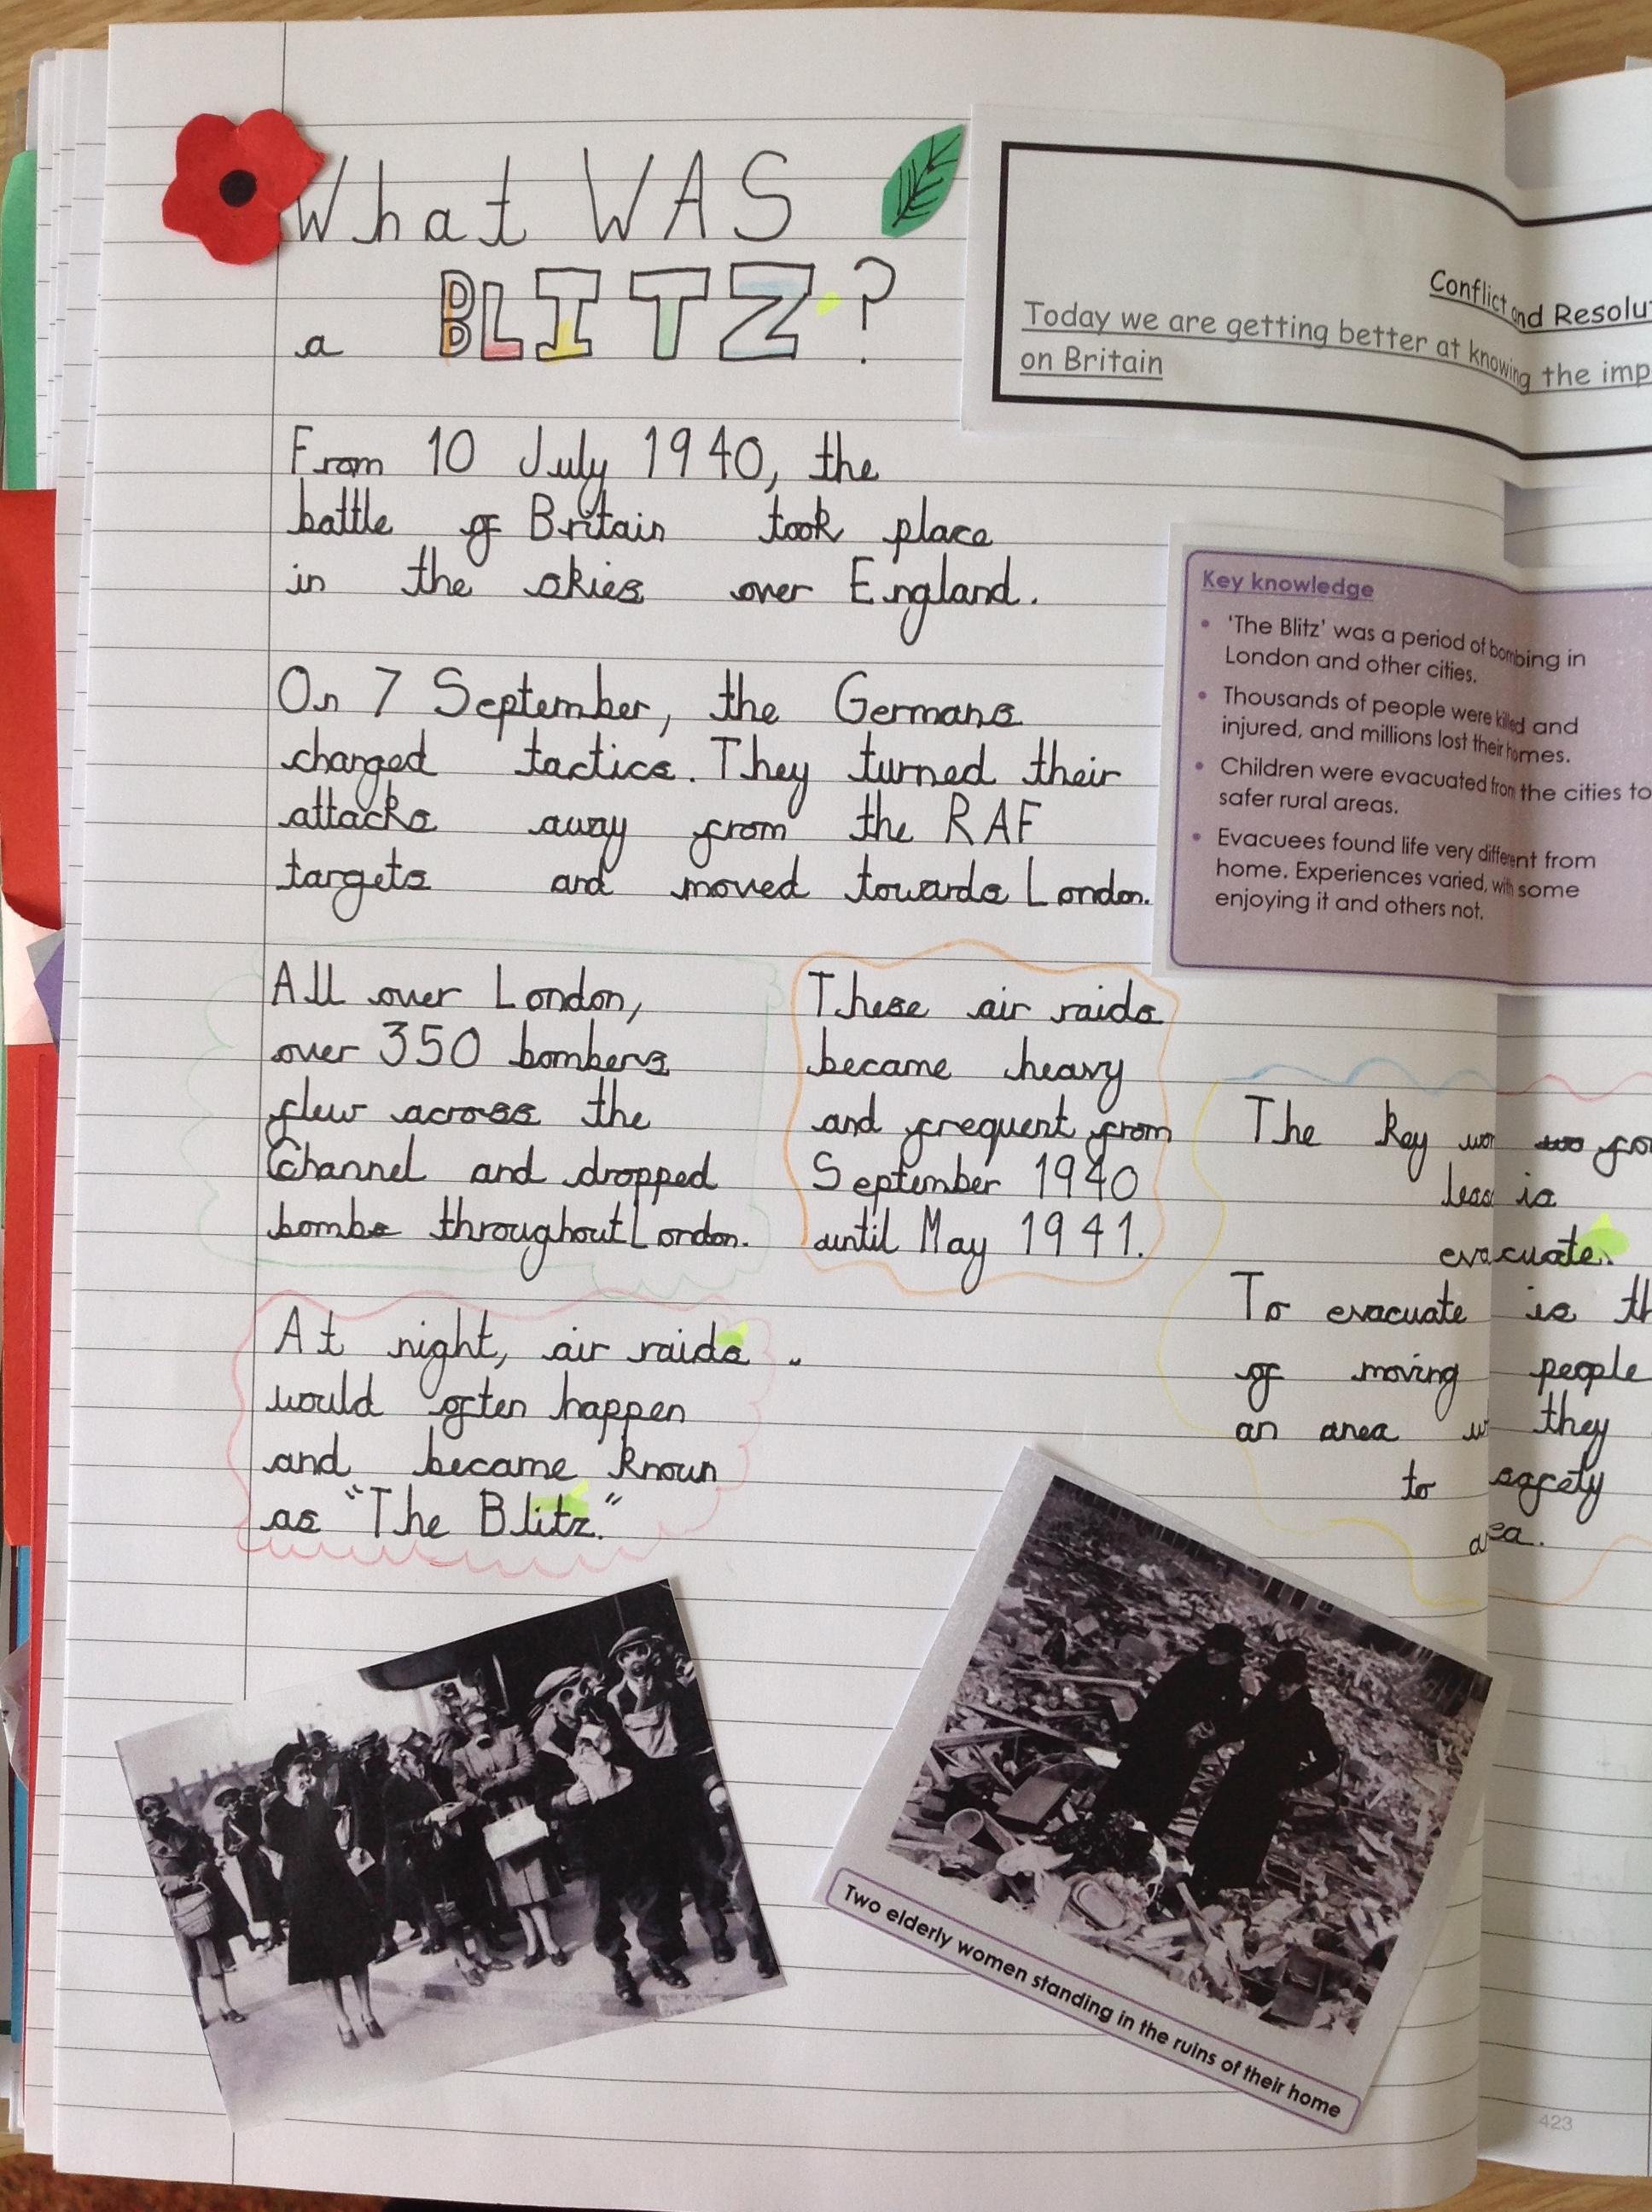 What WAS
a BLITZ?
Conflict and Resolu
Today we are getting better at knowing the imp
on Britain
From 10 July 1940, the
battle of Britain took place
in the skies over England.
On 7 September, the Germans
changed tactics. They turned their
attacks away from the RAF
targets and moved towards London.
Key knowledge
• 'The Blitz' was a period of bombing in
London and other cities.
• Thousands of people were killed and
injured, and millions lost their homes.
• Children were evacuated from the cities to
safer rural areas.
• Evacuees found life very different from
home. Experiences varied, with some
enjoying it and others not.
All over London,
over 350 bombers
flew across the
Channel and dropped
bombs throughout London.
These air raids
became heavy
and frequent from
September 1940
until May 1941.
At night, air raids
would often happen
and became known
as "The Blitz."
The key
is
evacuate.
To evacuate is
of moving people
an area they
to safety
Two elderly women standing in the ruins of their home
423